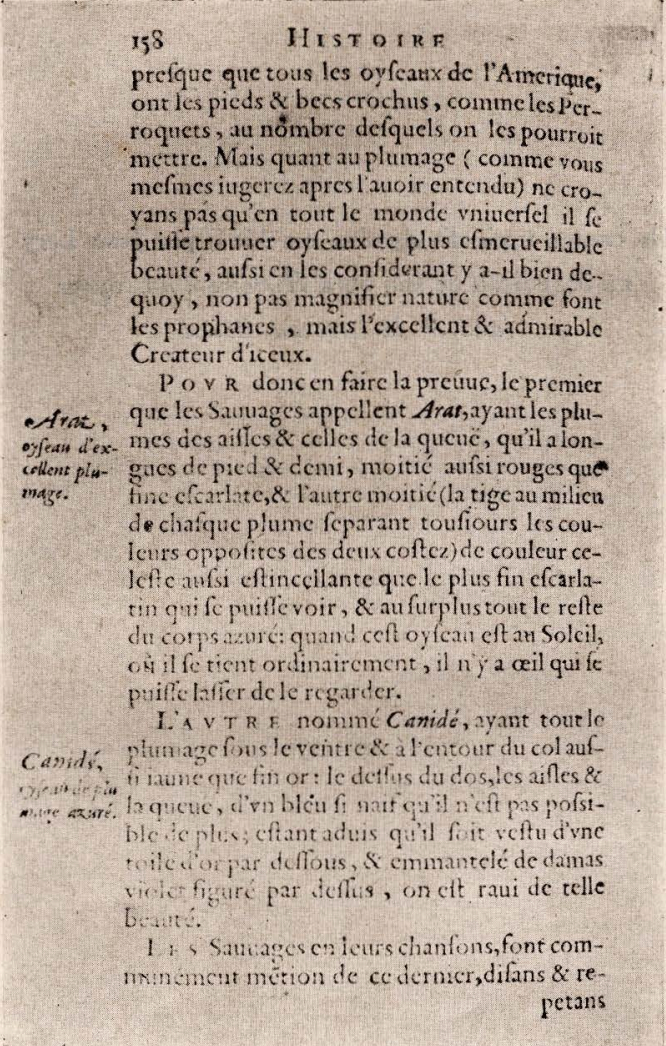 158 HISTOIRE
preſque que tous les oyſeaux de l'Amerique,
ont les pieds & becs crochus, comme les Per-
roquets, au nombre deſquels on les pourroit
mettre. Mais quant au plumage ( comme vous
meſmes iugerez apres l'auoir entendu) ne cro-
yans pas qu'en tout le monde vniuerſel il ſe
puiſſe trouuer oyſeaux de plus eſmerueillable
beauté, auſsi en les conſiderant y a-il bien de-
quoy, non pas magnifier nature comme font
les prophanes, mais l'excellent & admirable
Createur d'iceux.
POVR donc en faire la preuue, le premier
que les Sauuages appellent Arat, ayant les plu-
mes des aiſles & celles de la queuë, qu'il a lon-
gues de pied & demi, moitié auſsi rouges que
fine eſcarlate, & l'autre moitié (la tige au milieu
de chaſque plume ſeparant touſiours les cou-
leurs oppoſites des deux coſtez) de couleur ce-
leſte auſsi eſtincellante que le plus fin eſcarla-
tin qui ſe puiſſe voir, & au ſurplus tout le reſte
du corps azuré: quand ceſt oyſeau eſt au Soleil,
où il ſe tient ordinairement, il n'y a œil qui ſe
puiſſe laſſer de le regarder.
L'AVTRE nommé Canidé, ayant tout le
plumage ſous le ventre & à l'entour du col auſ-
ſi iaune que fin or: le deſſus du dos, les aiſles &
la queue, d'vn bleu ſi naif qu'il n'eſt pas poſsi-
ble de plus; eſtant aduis qu'il ſoit veſtu d'vne
toile d'or par deſſous, & emmantelé de damas
violet figuré par deſſus, on eſt raui de telle
beauté.
LES Sauuages en leurs chanſons, font com-
munément mẽtion de ce dernier, diſans & re-
petans
Arat,
oyſeau d'ex-
cellent plu-
mage.
Canidé,
oyſeau de plu
mage azuré.